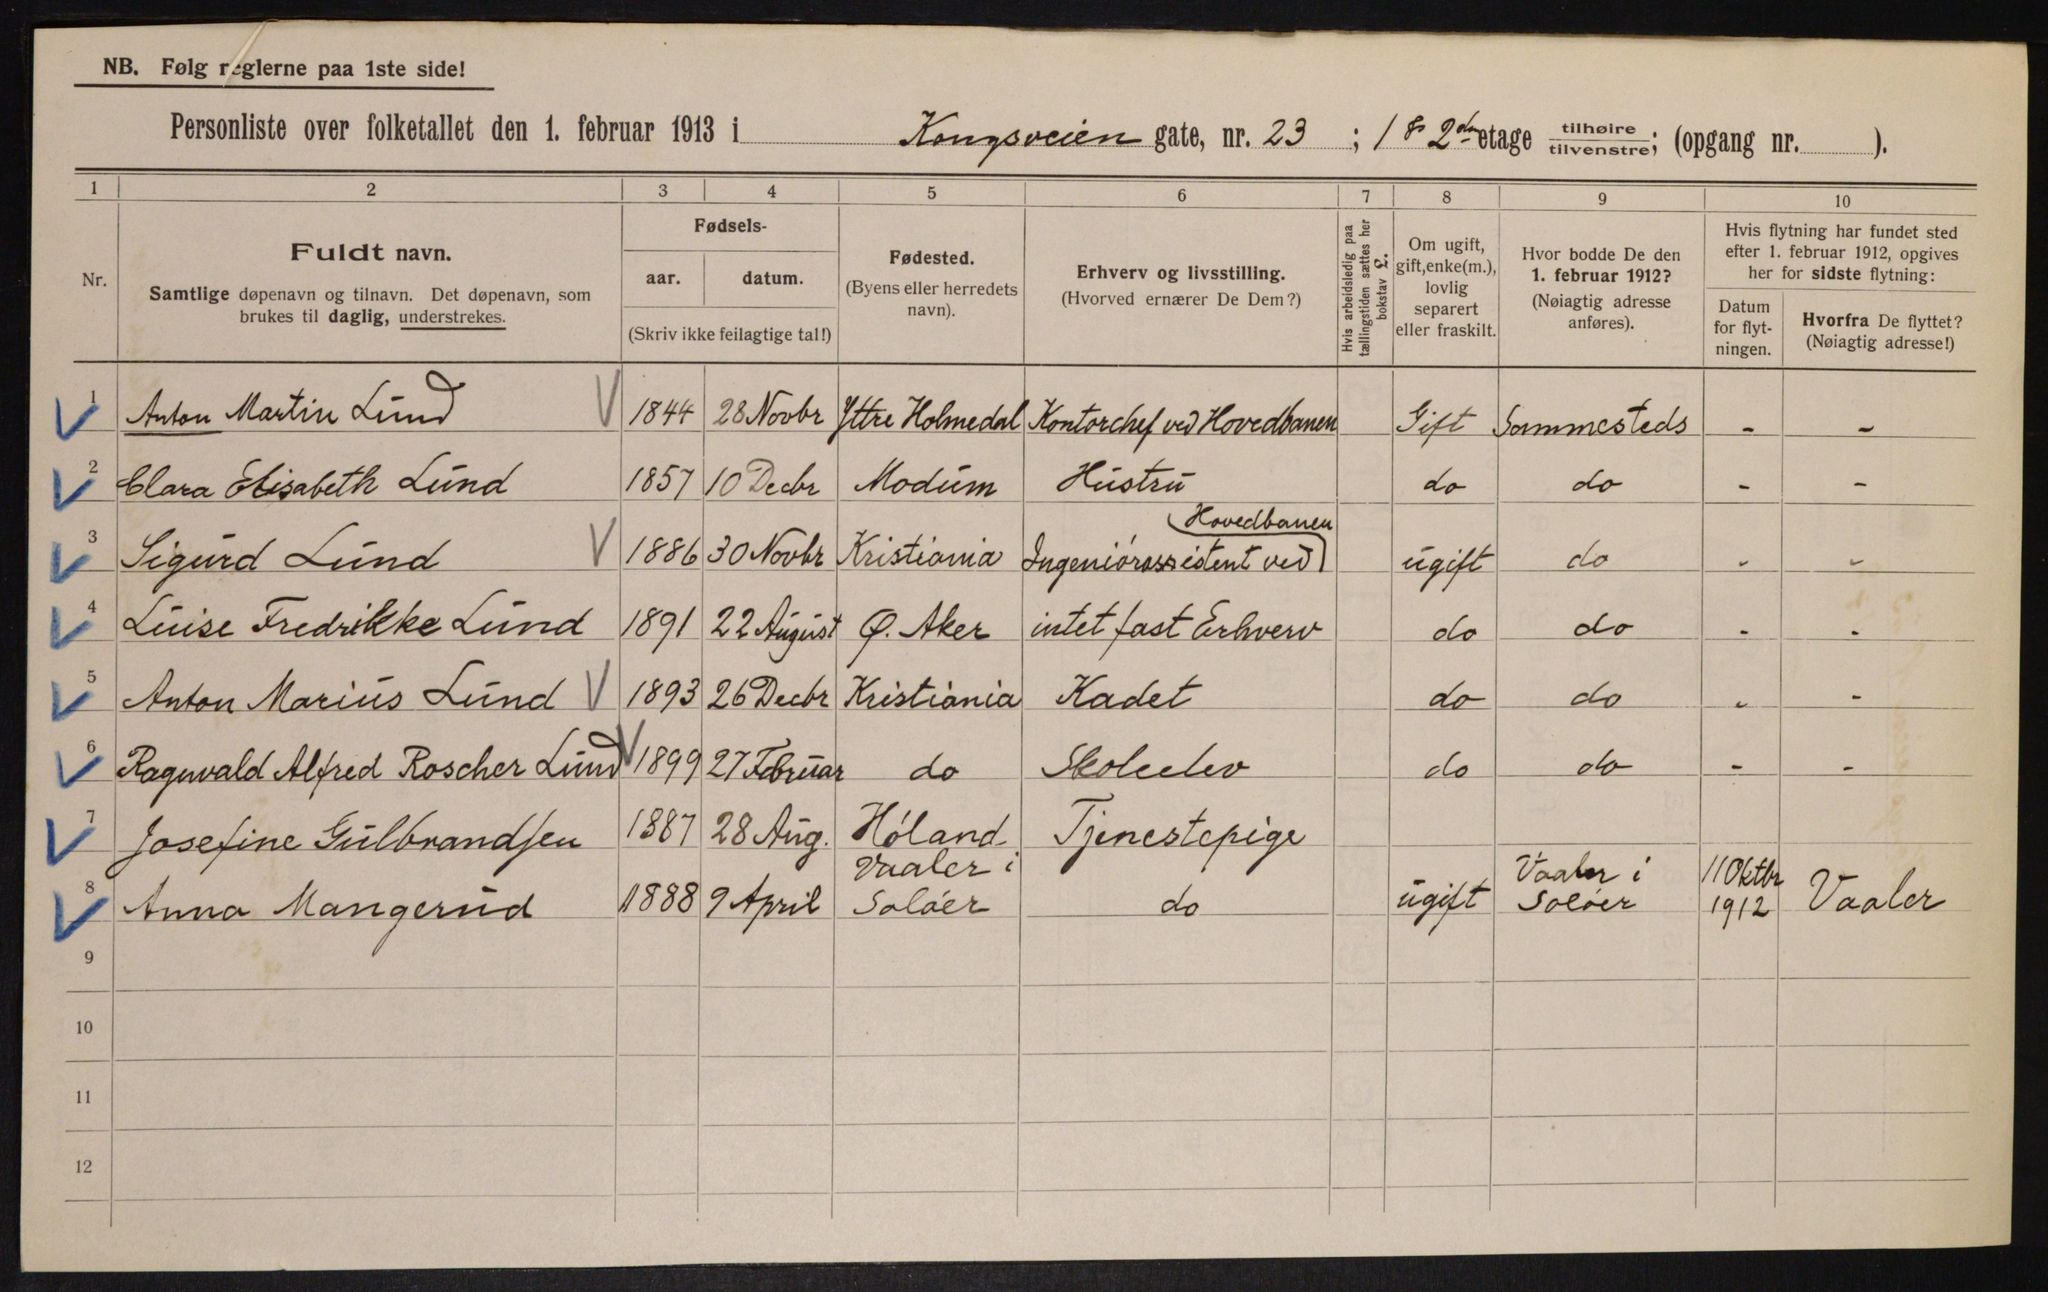 NB. Følg reglerne paa 1ste side!
Personliste over folketallet den 1. februar 1913 i Kongsveien gate, nr. 23 ; 1 & 2den etage tilhøire tilvenstre; (opgang nr. ).
1 2 3 4 5 6 7 8 9 10
Nr.
Fuldt navn.
Samtlige døpenavn og tilnavn. Det døpenavn, som
brukes til daglig, understrekes.
Fødsels-
aar. datum.
(Skriv ikke feilagtige tal!)
Fødested.
(Byens eller herredets
navn).
Erhverv og livsstilling.
(Hvorved ernærer De Dem?)
Hvis arbeidsledig paa
tællingstiden sættes her
bokstav L.
Om ugift,
gift, enke(m.),
lovlig
separert
eller fraskilt.
Hvor bodde De den
1. februar 1912?
(Nøiagtig adresse
anføres).
Hvis flytning har fundet sted
efter 1. februar 1912, opgives
her for sidste flytning:
Datum
for flyt-
ningen.
Hvorfra De flyttet?
(Nøiagtig adresse!)
1 Anton Martin Lund 1844 28 Novbr Yttre Holmedal Kontorchef ved Hovedbanen Gift Sammesteds - -
2 Clara Elisabeth Lund 1857 10 Decbr Modum Hustru do do - -
3 Sigurd Lund 1886 30 Novbr Kristiania Ingeniørassistent ved Hovedbanen ugift do - -
4 Luise Fredrikke Lund 1891 22 August Ø. Aker intet fast Erhverv do do - -
5 Anton Marius Lund 1893 26 Decbr Kristiania Kadet do do - -
6 Ragnvald Alfred Roscher Lund 1899 27 Februar do Skoleelev do do - -
7 Josefine Gulbrandsen 1887 28 Aug. Høland Tjenestepige
8 Anna Mangerud 1888 9 April Vaaler i Soløer do ugift Vaaler i Soløer 11 Oktbr 1912 Vaaler
9
10
11
12